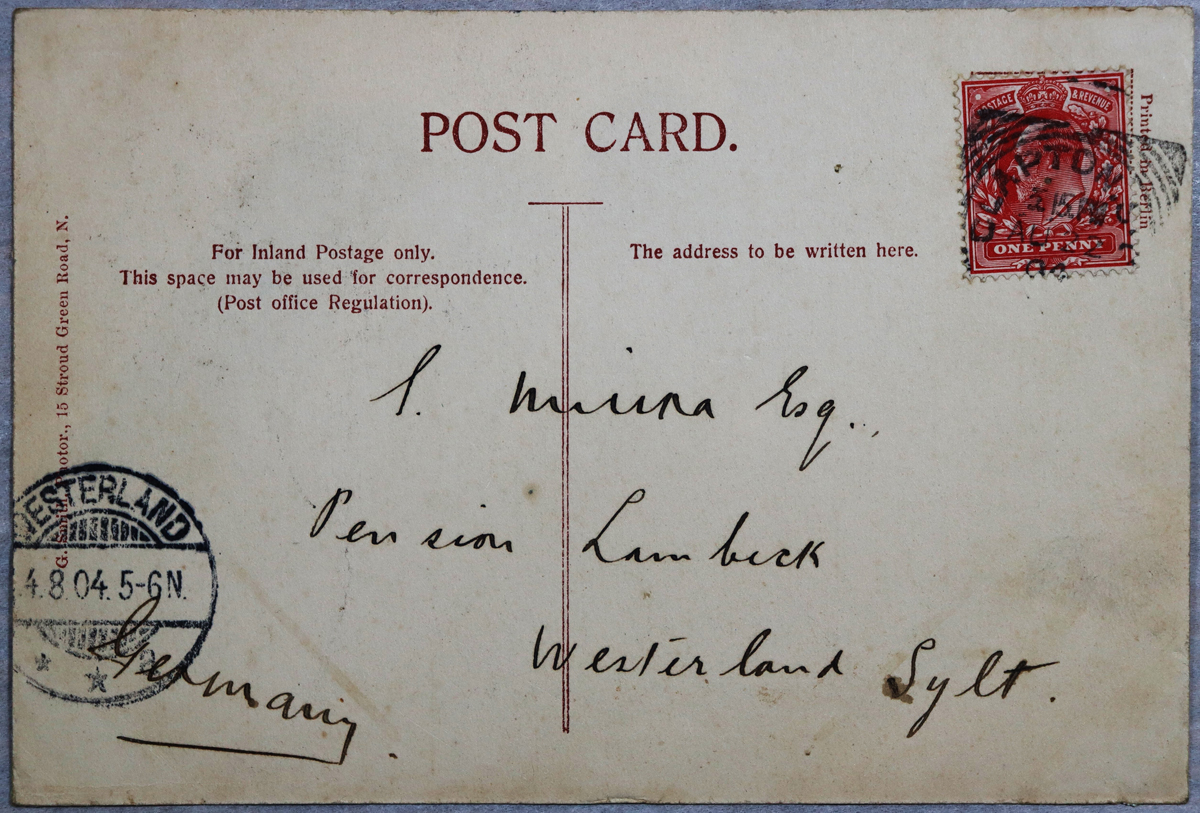 POST CARD.
POSTAGE & REVENUE
ONE PENNY
Printed in Berlin
For Inland Postage only.
This space may be used for correspondence.
(Post office Regulation).
The address to be written here.
G. Smith, Photor., 15 Stroud Green Road, N.
S. Miura Esq.
Pension Lambeck
Westerland Sylt.
Germany.
WESTERLAND
4.8.04. 5-6N.